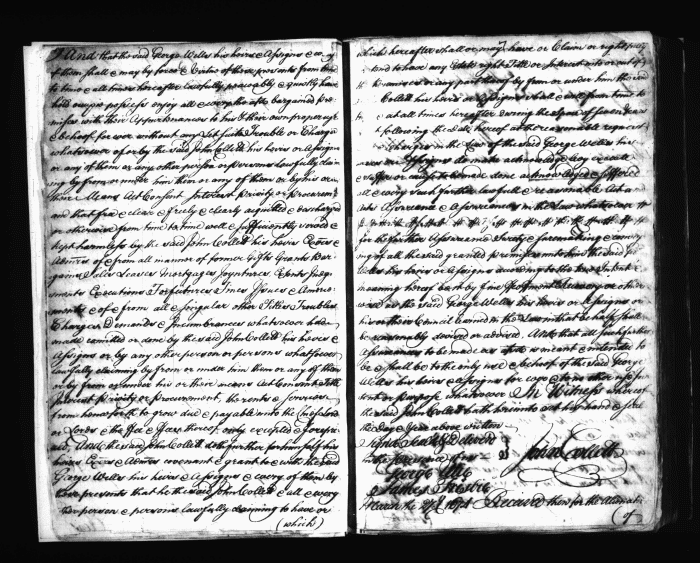 And that the said George Wells his heires & Assignes & every
of them shall & may by force & Virtue of these presents from time
to time & att all times hereafter lawfully peaceably & quietly have
hold occupie possess enjoy all & every the afore bargained pre-
misses with their Appurtenances to his & their own proper use
& behoof for ever without any Lett Suite Trouble or Charge
whatsoever of or by the said John Collett his heires or Assignes
or any of them or any other person or persons Lawfully claim-
ing by from or under him them or any of them or by his or
their Means Act Consent Interest Privity or Procurem.t
and that free & clear & freely & clearly acquitted & discharged
or otherwise from time to time well & sufficiently saved &
kept harmless by the said John Collett his heires Exõrs &
Admõrs of & from all manner of former Gifts Grants Bar-
gains Sales Leases Mortgages Joyntures Rents Judg-
ments Executions Forfeitures Fines Issues & Amerce-
ments & of & from all & singular other Titles Troubles
Charges Demands & Incumbrances whatsoever had
made comitted or done by the said John Collett his heires &
Assignes or by any other person or persons whatsoever
lawfully claiming by from or under him them or any of them
or by from or under his or their means Act Consent Title
Interest Privity or procurement, the rents & services
from henceforth to grow due & payable unto the Cheife Lord
or Lords & the Fee & Fees thereof, only excepted & forepri-
zed, And the said John Collett doth further for himself his
heires Exõrs & Admõrs covenant & grant to & with the said
George Wells his heires & Assignes & every of them by
these presents that he the said John Collett & all & every
other person & persons lawfully claiming to have or
(which)
which hereafter shall or may have or Claim or right
tend to have any Estate right Title or Interest into or out of
the premises or any part thereof by from or under him the said
Collett his heirs or Assignes shall & will from time to
& at all times hereafter during the space of seven Years
following the date hereof at the reasonable request
& charges in the Law of the said George Wells his
heires or Assignes do make acknowledge & suffer
or cause to be made done acknowledged & suffered
all & every such further lawfull & reasonable Act and
Acts Assurance & Assurances in the Law whatsoever
for the further Assurance surety & suremaking & convey-
ing of all the said granted premisses to him the said George
Wells his heires & Assignes according to the true Intent &
meaning hereof be it by fine feoffment recovery or other-
wise as the said George Wells his heires or Assignes or
his or their Council learned in the Law in that behalf shall
be reasonably devised or advised, And that all such further
Assurances to be made as afore is meant & intended to
be & shall be to the only use & behoof of the said George
Wells his heires & Assignes for ever & to no other use In-
tent or purpose whatsoever In Witness whereof
the said John Collett hath hereunto set his hand & seale
the day & year above written
Signed Sealed & Delivered
in the presence of us
John Collett
George
James
of